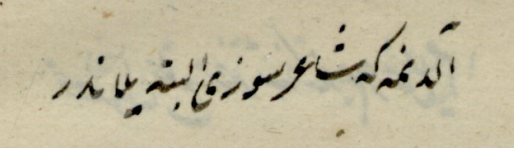 آلدنمه كه شاعر سوزی البته یلاندر